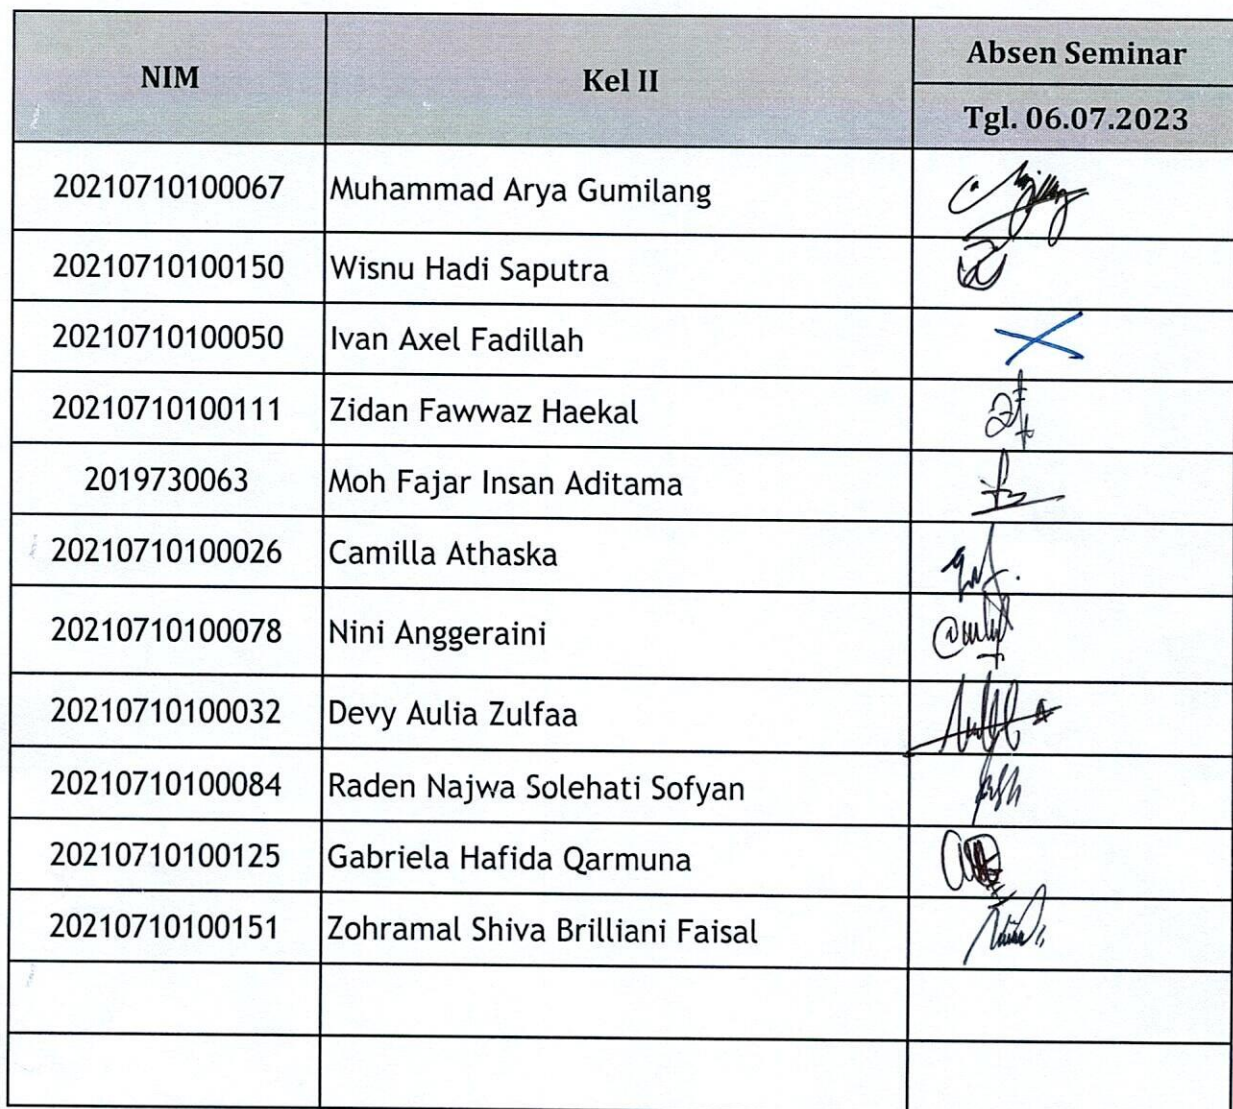 NIM
Kel II
Absen Seminar
Tgl. 06.07.2023
20210710100067 Muhammad Arya Gumilang
20210710100150 Wisnu Hadi Saputra
20210710100050 Ivan Axel Fadillah
20210710100111 Zidan Fawwaz Haekal
2019730063 Moh Fajar Insan Aditama
20210710100026 Camilla Athaska
20210710100078 Nini Anggeraini
20210710100032 Devy Aulia Zulfaa
20210710100084 Raden Najwa Solehati Sofyan
20210710100125 Gabriela Hafida Qarmuna
20210710100151 Zohramal Shiva Brilliani Faisal